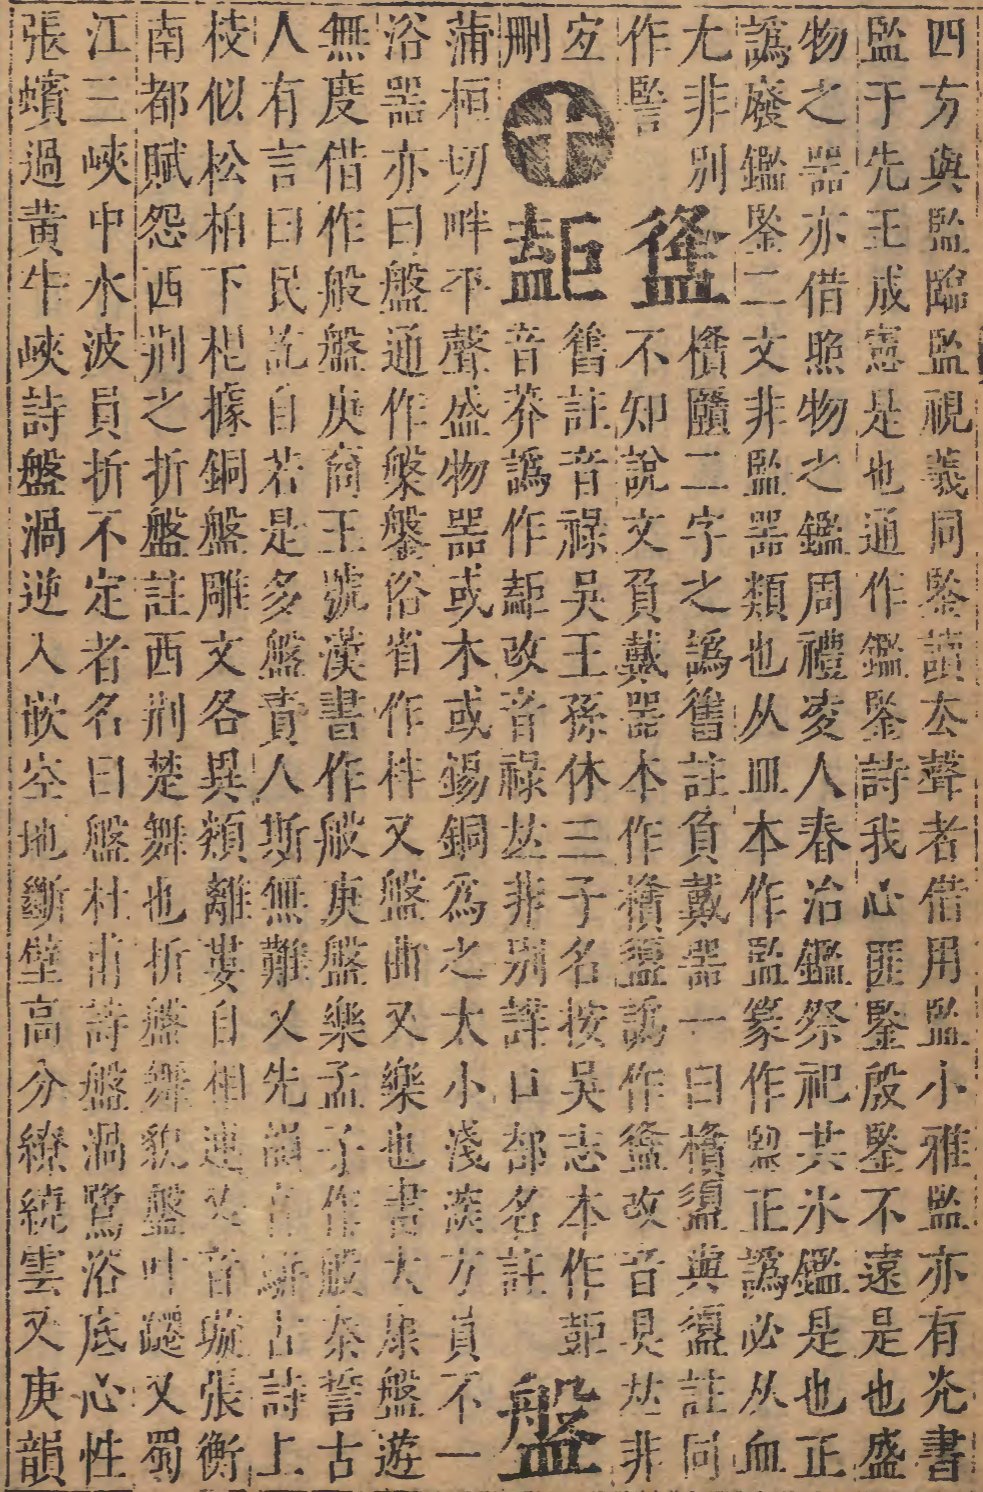 四方與監臨監視義同鍳讀去聲者借用監小雅監亦有光書
監于先王成憲是也通作鑑鍳詩我心匪鍳殷鍳不遠是也盛
物之器亦借照物之鑑周禮凌人春治鑑祭祀共氷鑑是也正
譌廢鑑鍳二文非監器類也从皿本作監篆作 正譌必从血
尤非別 㯭 二字之譌舊註負戴器一曰㯭 與 註同
作 不知說文負戴器本作㯭 譌作 改音見 非
舊註音祿吳王孫休三子名按吳志本作
𧯡音莽譌作𧯡改音祿 非別詳口部名註
蒲桓切畔平聲盛物器或木或錫銅爲之大小淺深方員不一
浴器亦曰盤通作槃鎜俗省作柈又盤曲又樂也書大康盤遊
無度借作般盤庚商王號漢書作般庚盤樂孟子作般泰誓古
人有言曰民訖自若是多盤責人斯無難又先韻音 古詩上
枝似松柏下根據銅盤雕文各異類離婁自相連又音璇張衡
南都賦怨西荆之折盤註西荆楚舞也折盤舞貌盤叶蹮又蜀
江三峽中水波員折不定者名曰盤杜甫詩盤渦鷺浴底心性
張蠙過黃牛峽詩盤渦逆入嵌空地斷壁高分繚繞雲又庚韻